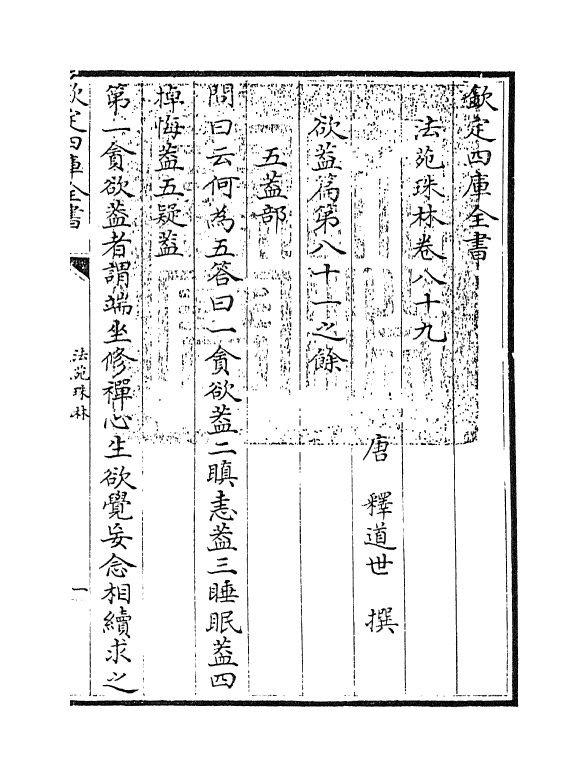 欽定四庫全書
法苑珠林卷八十九
唐 釋道世 撰
欲蓋篇第八十一之餘
五葢部
問曰云何為五答曰一貪欲葢二瞋恚葢三睡眠葢四
掉悔葢五疑葢
第一貪欲葢者謂端坐修禪心生欲覺妄念相續求之
欽定四庫全書
法苑珠林
一